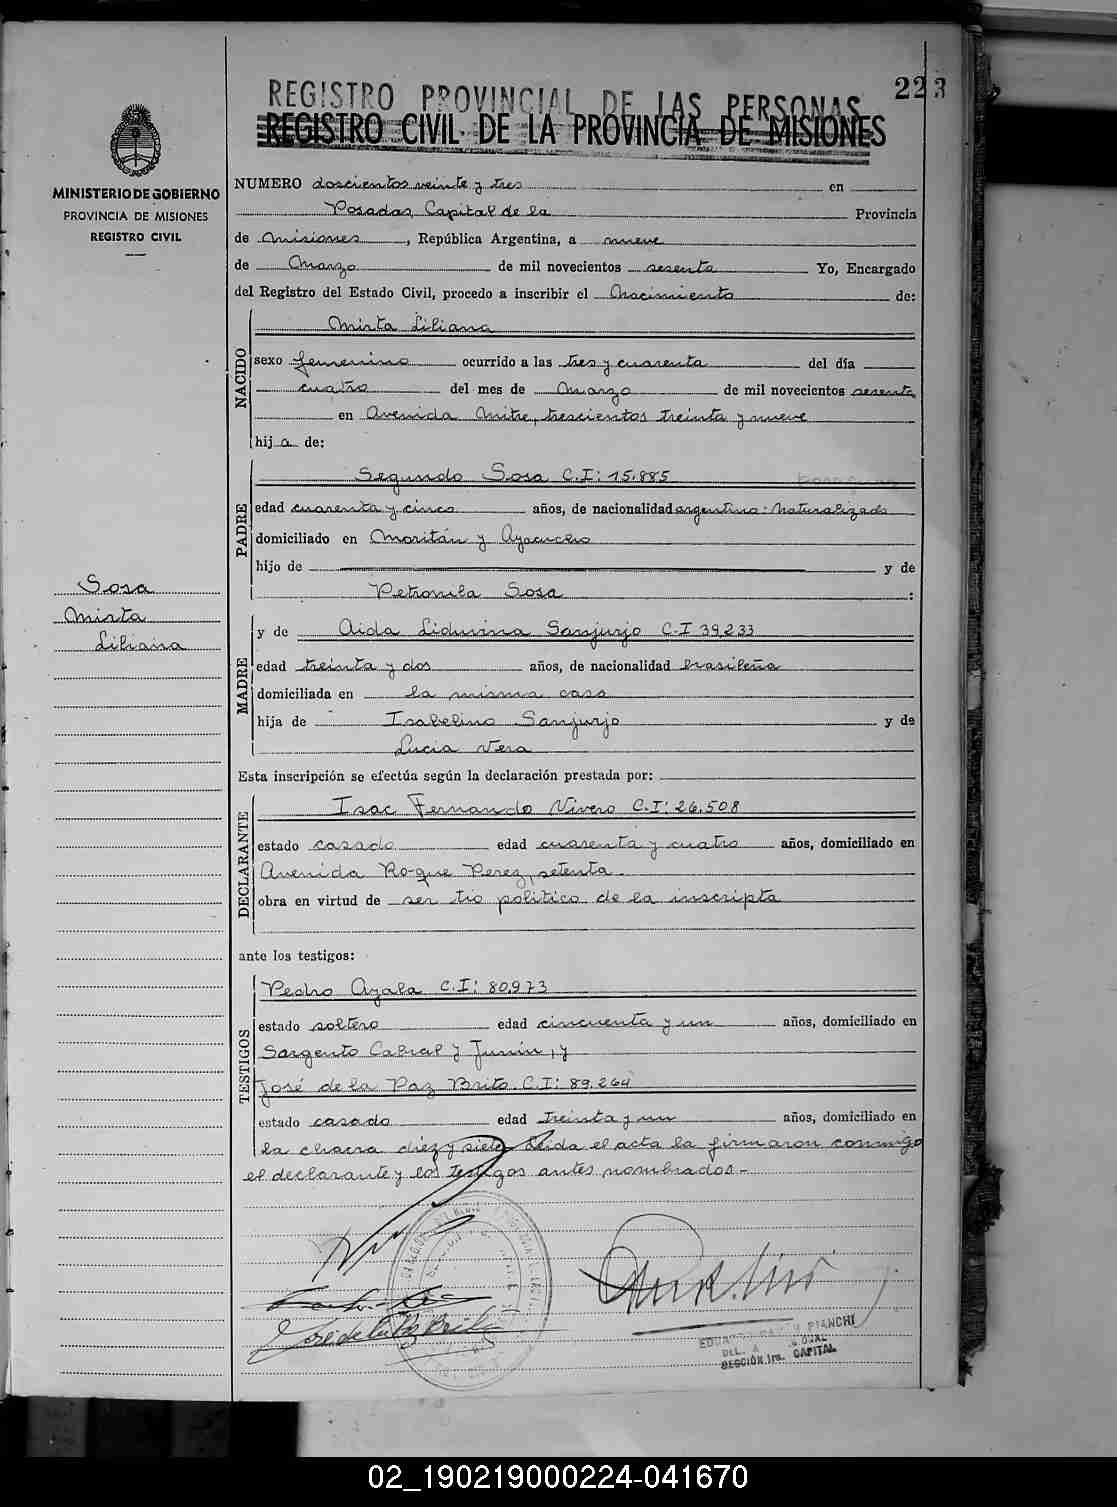 223
REGISTRO PROVINCIAL DE LAS PERSONAS
REGISTRO CIVIL DE LA PROVINCIA DE MISIONES
MINISTERIO DE GOBIERNO
PROVINCIA DE MISIONES
REGISTRO CIVIL
NUMERO doscientos veinte y tres en
Posadas, Capital de la Provincia
de Misiones, República Argentina, a nueve
de Marzo de mil novecientos sesenta Yo, Encargado
del Registro del Estado Civil, procedo a inscribir el Nacimiento de:
NACIDO
Mirta Liliana
sexo femenino ocurrido a las tres y cuarenta del día
cuatro del mes de Marzo de mil novecientos sesenta
en Avenida Mitre, trescientos treinta y nueve
hija de:
PADRE
Segundo Sosa C.I: 15.885
edad cuarenta y cinco años, de nacionalidad argentino: Naturalizado
domiciliado en Moritán y Ayacucho
hijo de y de
Petronila Sosa :
Sosa
Mirta
Liliana
MADRE
y de Aida Liduvina Sanjurjo C-I 39,233
edad treinta y dos años, de nacionalidad brasileña
domiciliada en la misma casa
hija de Isabelino Sanjurjo y de
Lucia Vera
Esta inscripción se efectúa según la declaración prestada por:
DECLARANTE
Isac Fernando Vivero C.I: 26.508
estado casado edad cuarenta y cuatro años, domiciliado en
Avenida Roque Perez, setenta
obra en virtud de ser tio politico de la inscripta
ante los testigos:
TESTIGOS
Pedro Ayala C.I: 80,973
estado soltero edad cincuenta y un años, domiciliado en
Sargento Cabral y Junin, y
José de la Paz Brito C.I: 89.264
estado casado edad treinta y un años, domiciliado en
la chacra diez y siete Leida el acta la firmaron conmigo
el declarante y los testigos antes nombrados-
José de la Paz Brito
BIANCHI
SECCIÓN 1ra. CAPITAL
02_190219000224-041670